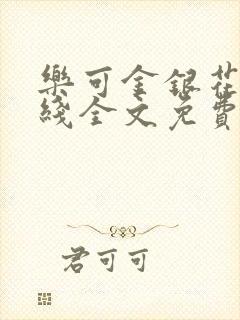 樂可金銀花
綫全文免費
君可可